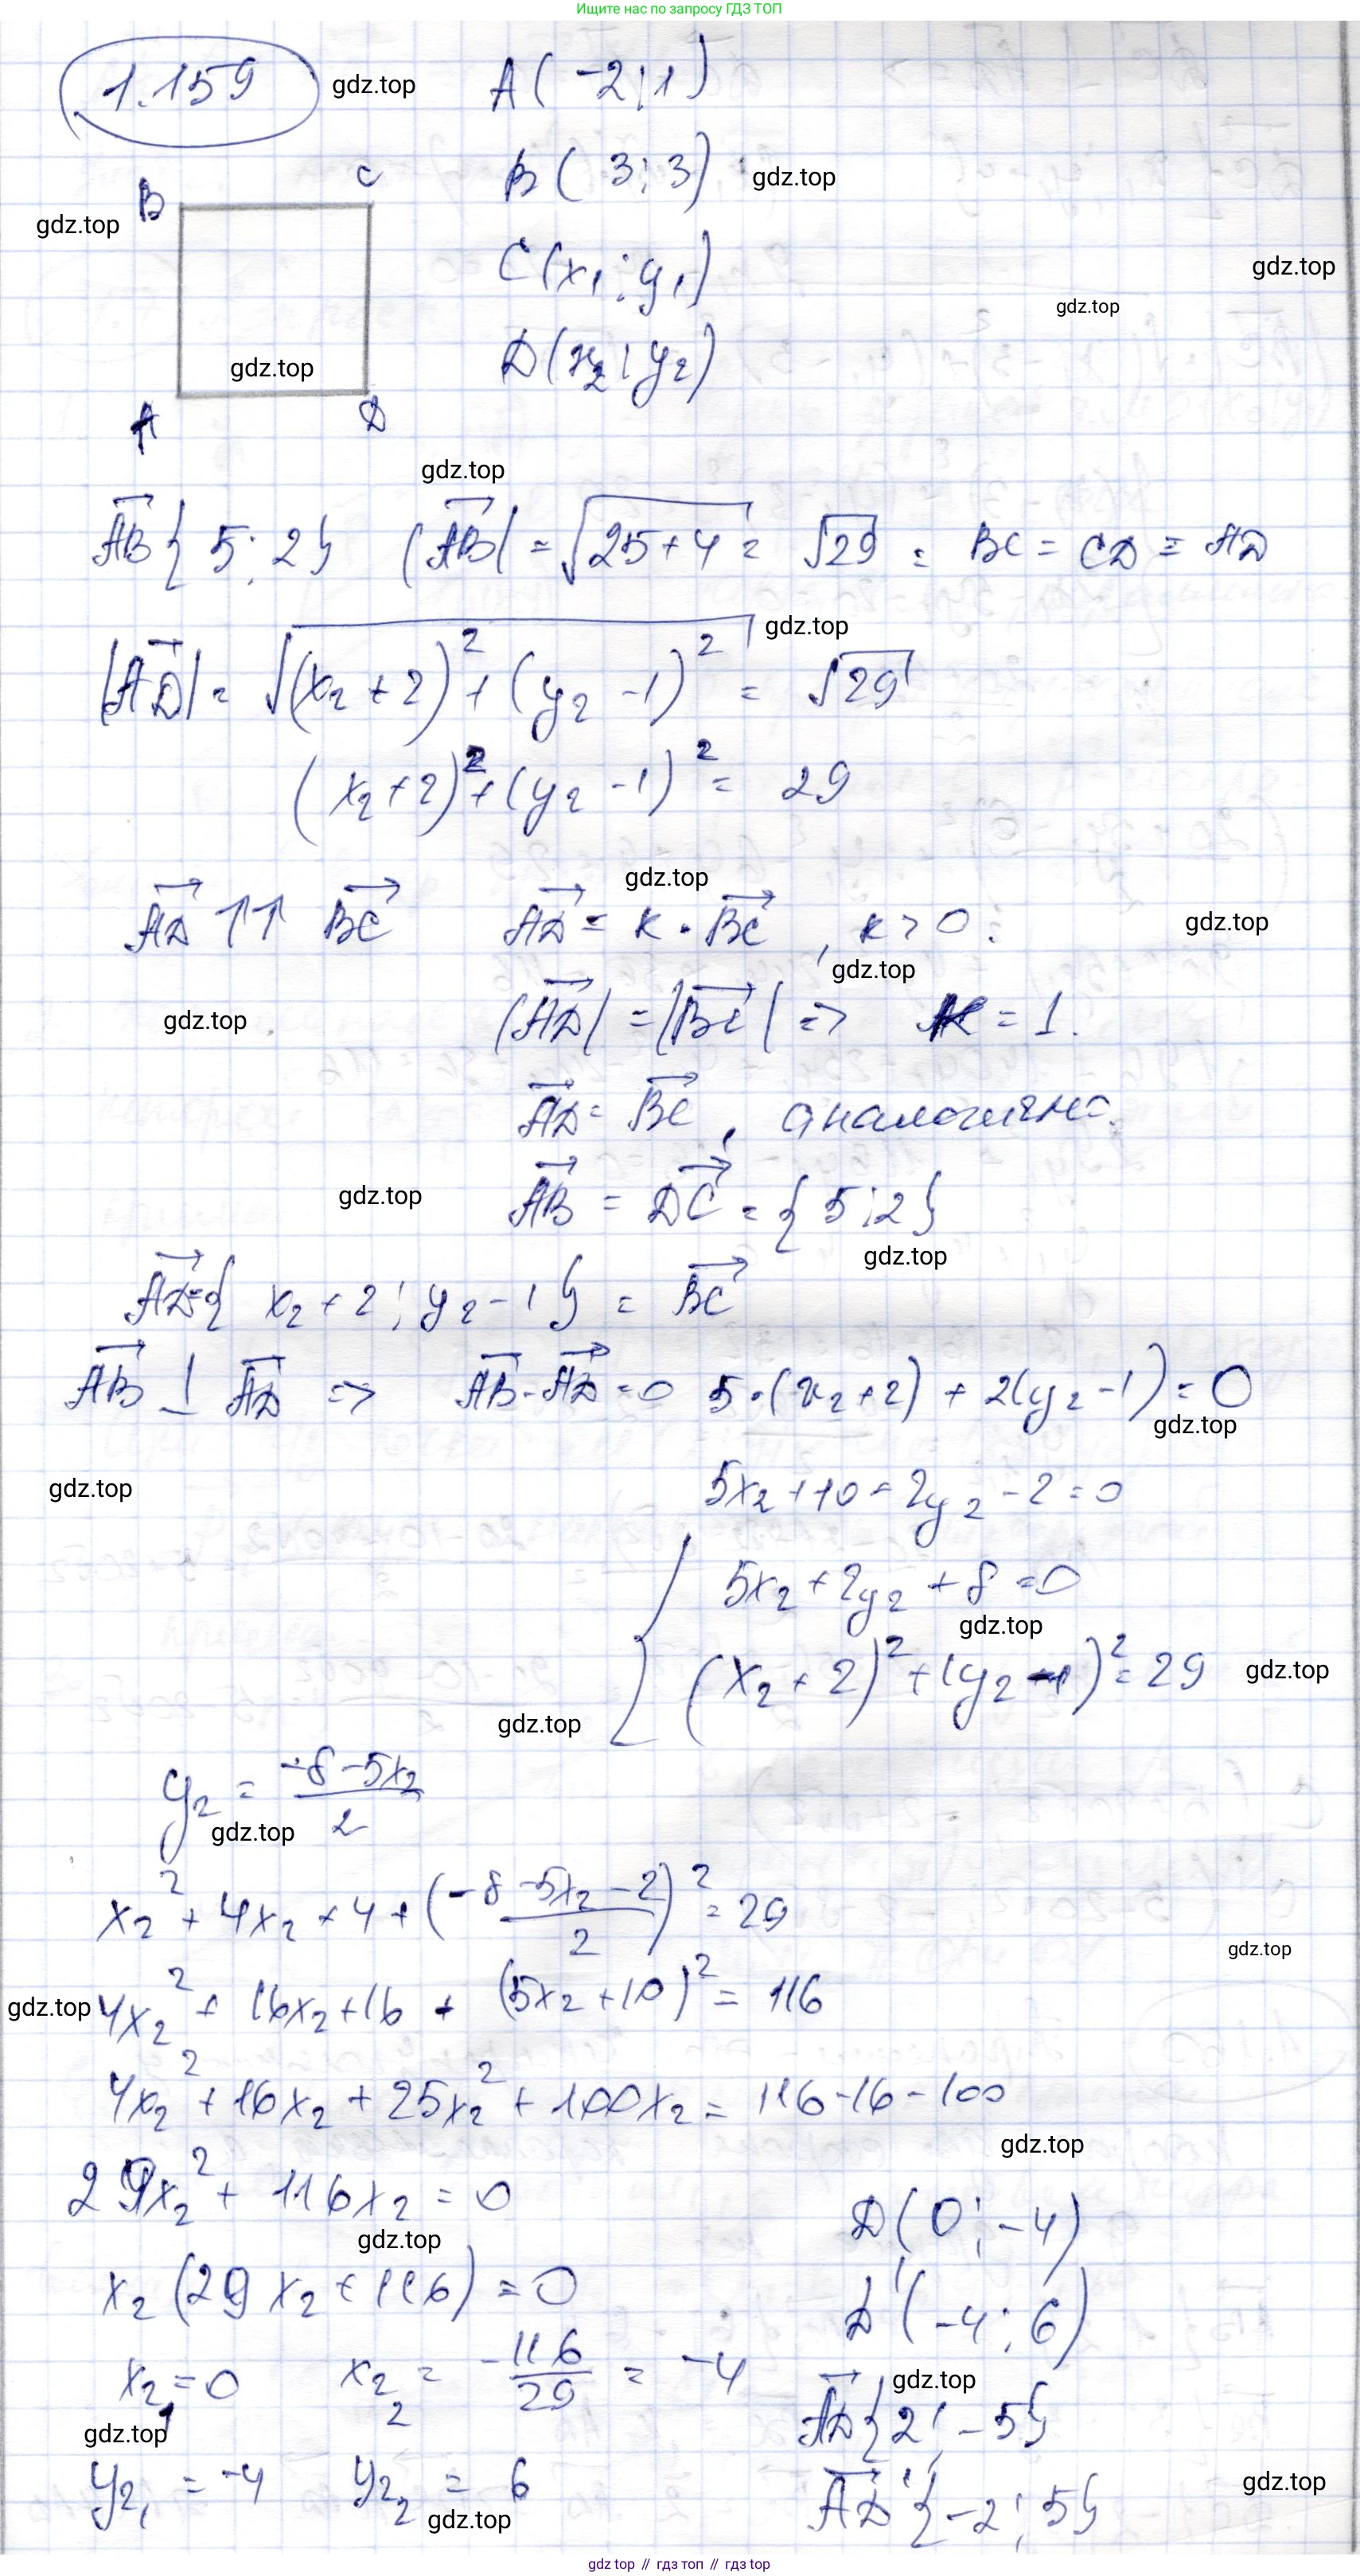 Ищите нас по запросу ГДЗ ТОП
1.159 gdz.top A(-2;1)
B(3;3) gdz.top
B C
gdz.top
C(x₁;y₁) gdz.top
gdz.top
D(x₂;y₂)
gdz.top
A D
gdz.top
AB{5;2} |AB| = √25+4 = √29 = BC = CD = AD
gdz.top
|AD| = √(x₂+2)²+(y₂-1)² = √29
(x₂+2)²+(y₂-1)² = 29
gdz.top
AD ↑↑ BC AD = k · BC, k > 0. gdz.top
gdz.top
gdz.top |AD| = |BC| => k = 1.
AD = BC, аналогично.
gdz.top AB = DC = {5;2}
gdz.top
AD={x₂+2; y₂-1} = BC
AB ⊥ AD => AB·AD=0 5·(x₂+2) + 2(y₂-1) = 0
gdz.top
gdz.top 5x₂+10+2y₂-2=0
5x₂+2y₂+8=0
gdz.top
(x₂+2)²+(y₂-1)²=29 gdz.top
gdz.top
y₂ = -8-5x₂ / 2
gdz.top
x₂²+4x₂+4+(-8-5x₂-2 / 2)²=29
gdz.top
gdz.top 4x₂²+16x₂+16+(5x₂+10)²=116
4x₂²+16x₂+25x₂²+100x₂=116-16-100
gdz.top
29x₂²+116x₂=0 D(0;-4)
gdz.top
x₂(29x₂+116)=0 D'(-4;6)
x₂₁=0 x₂₂ = -116/29 = -4 gdz.top
AD{2;-5}
gdz.top
y₂₁=-4 y₂₂=6 gdz.top
AD'{-2;5}
gdz.top
gdz top // гдз топ // гдз top